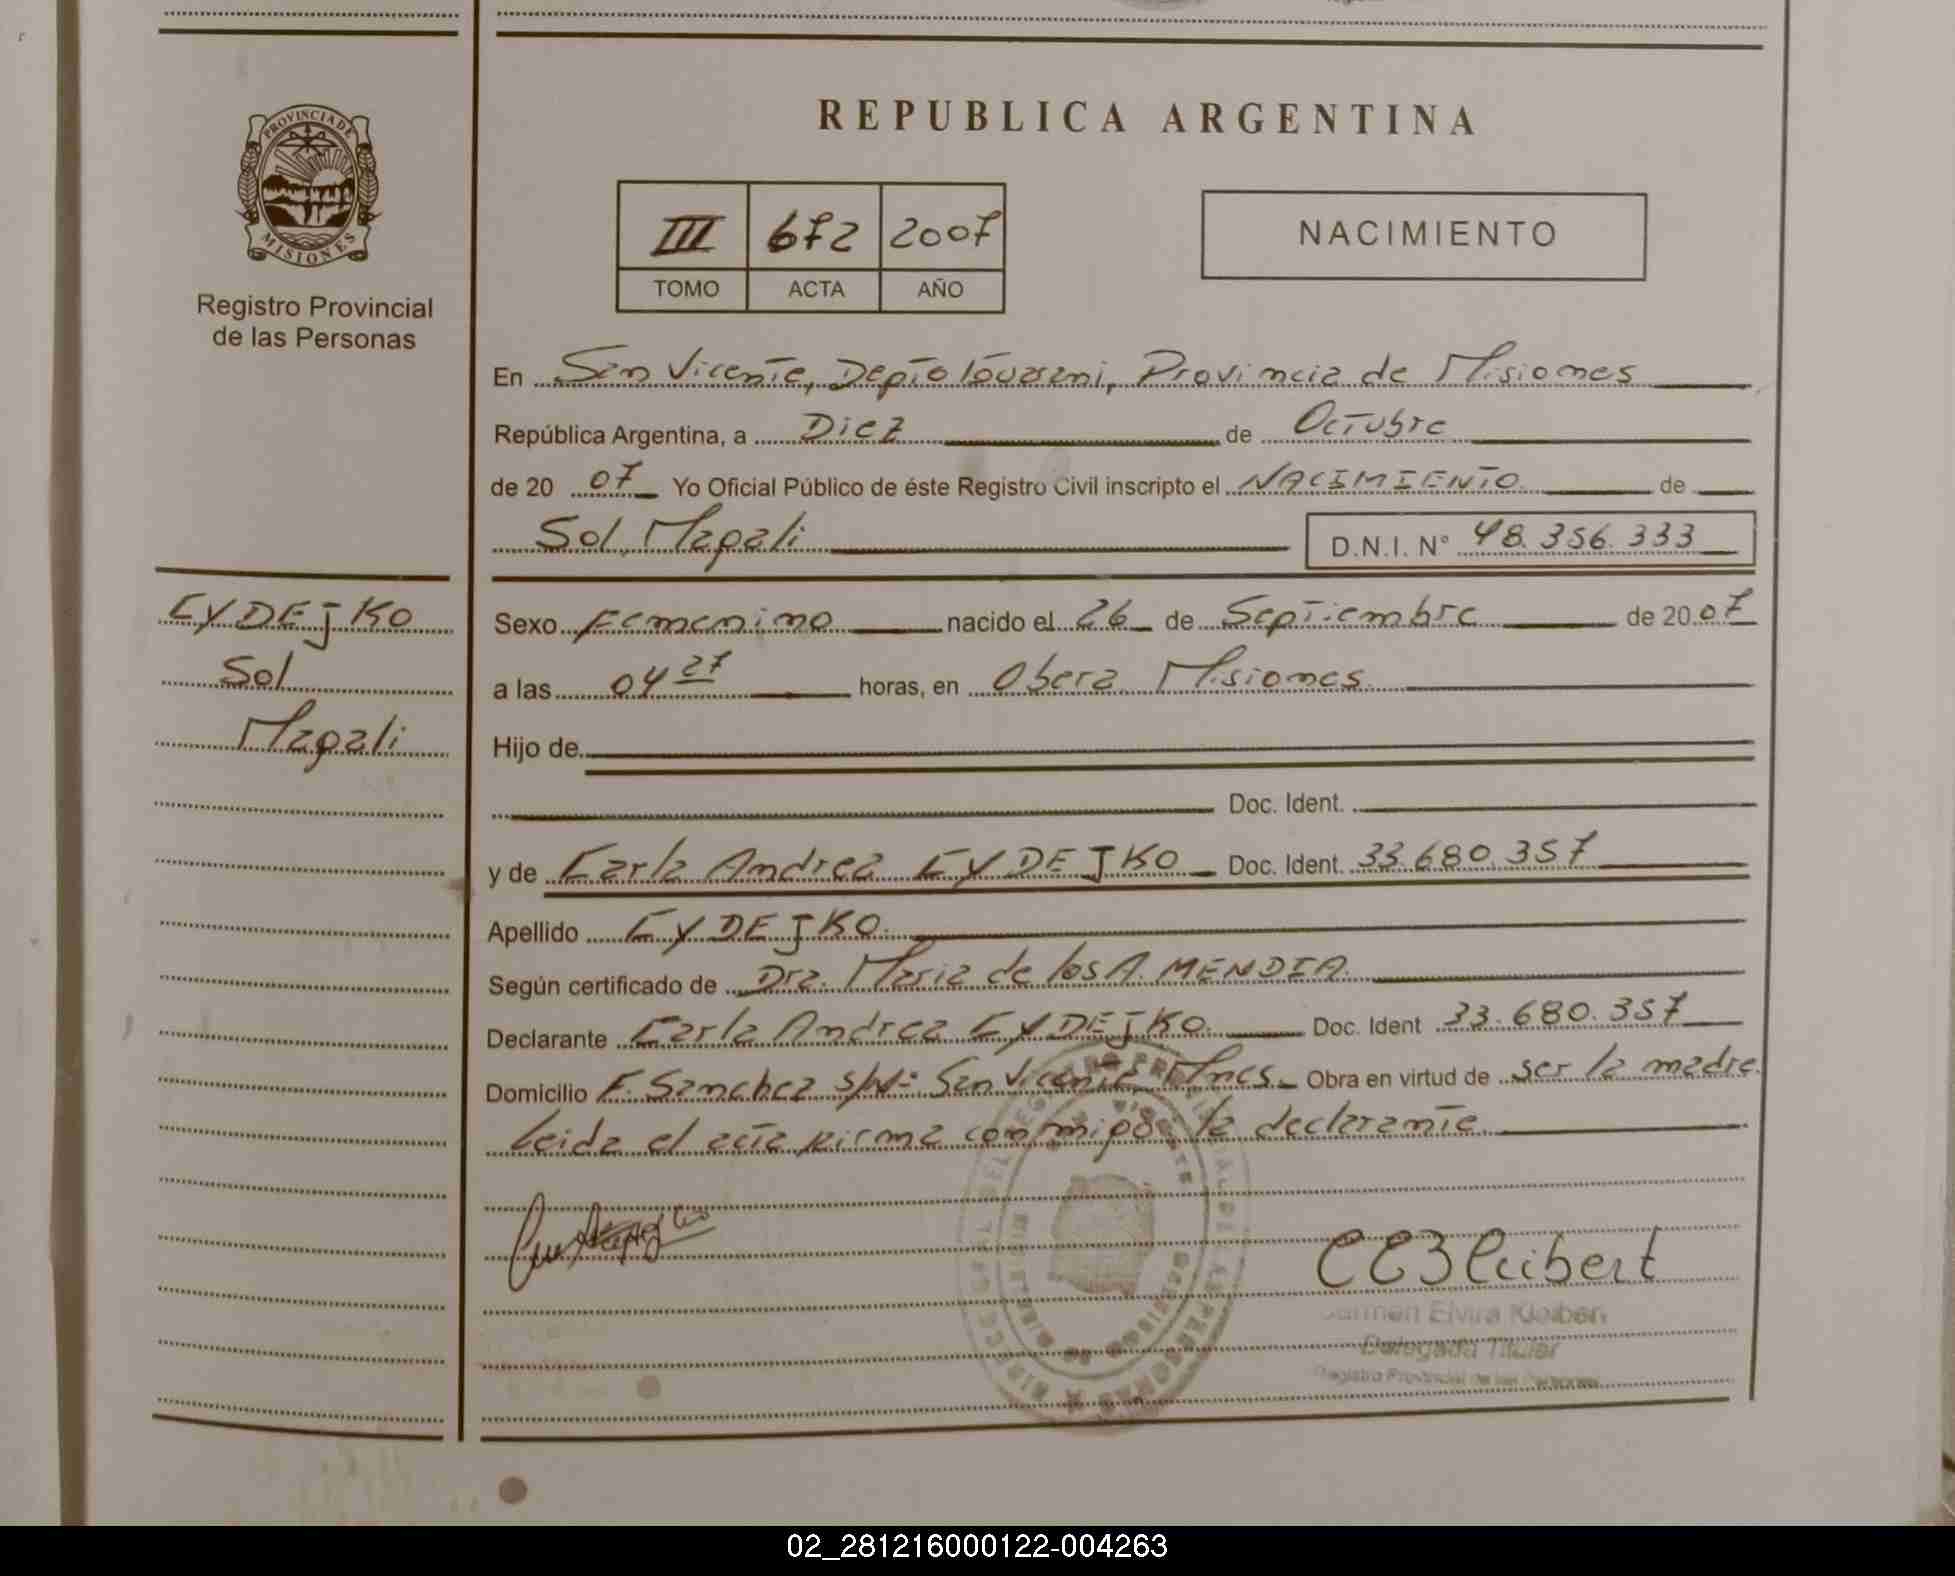 REPUBLICA ARGENTINA
PROVINCIA DE MISIONES
Registro Provincial
de las Personas
III 672 2007
TOMO ACTA AÑO
NACIMIENTO
En San Vicente, Depto Guarani, Provincia de Misiones
República Argentina, a Diez de Octubre
de 20 07 Yo Oficial Público de éste Registro Civil inscripto el NACIMIENTO de
Sol Magali D.N.I. N° 48.356.333
CYDEJKO
Sol
Magali
Sexo Femenino nacido el 26 de Septiembre de 20 07
a las 04 27 horas, en Obera Misiones
Hijo de
Doc. Ident.
y de Carla Andrea CYDEJKO Doc. Ident. 33.680.357
Apellido CYDEJKO
Según certificado de Dra. Maria de los A. MENDIA
Declarante Carla Andrea CYDEJKO Doc. Ident 33.680.357
Domicilio F. Sanchez s/Nº San Vicente Mnes. Obra en virtud de ser la madre.
Leida el acta firma conmigo la declarante
CEKleibert
Carmen Elvira Kleibert
Delegada Titular
Registro Provincial de las Personas
02_281216000122-004263